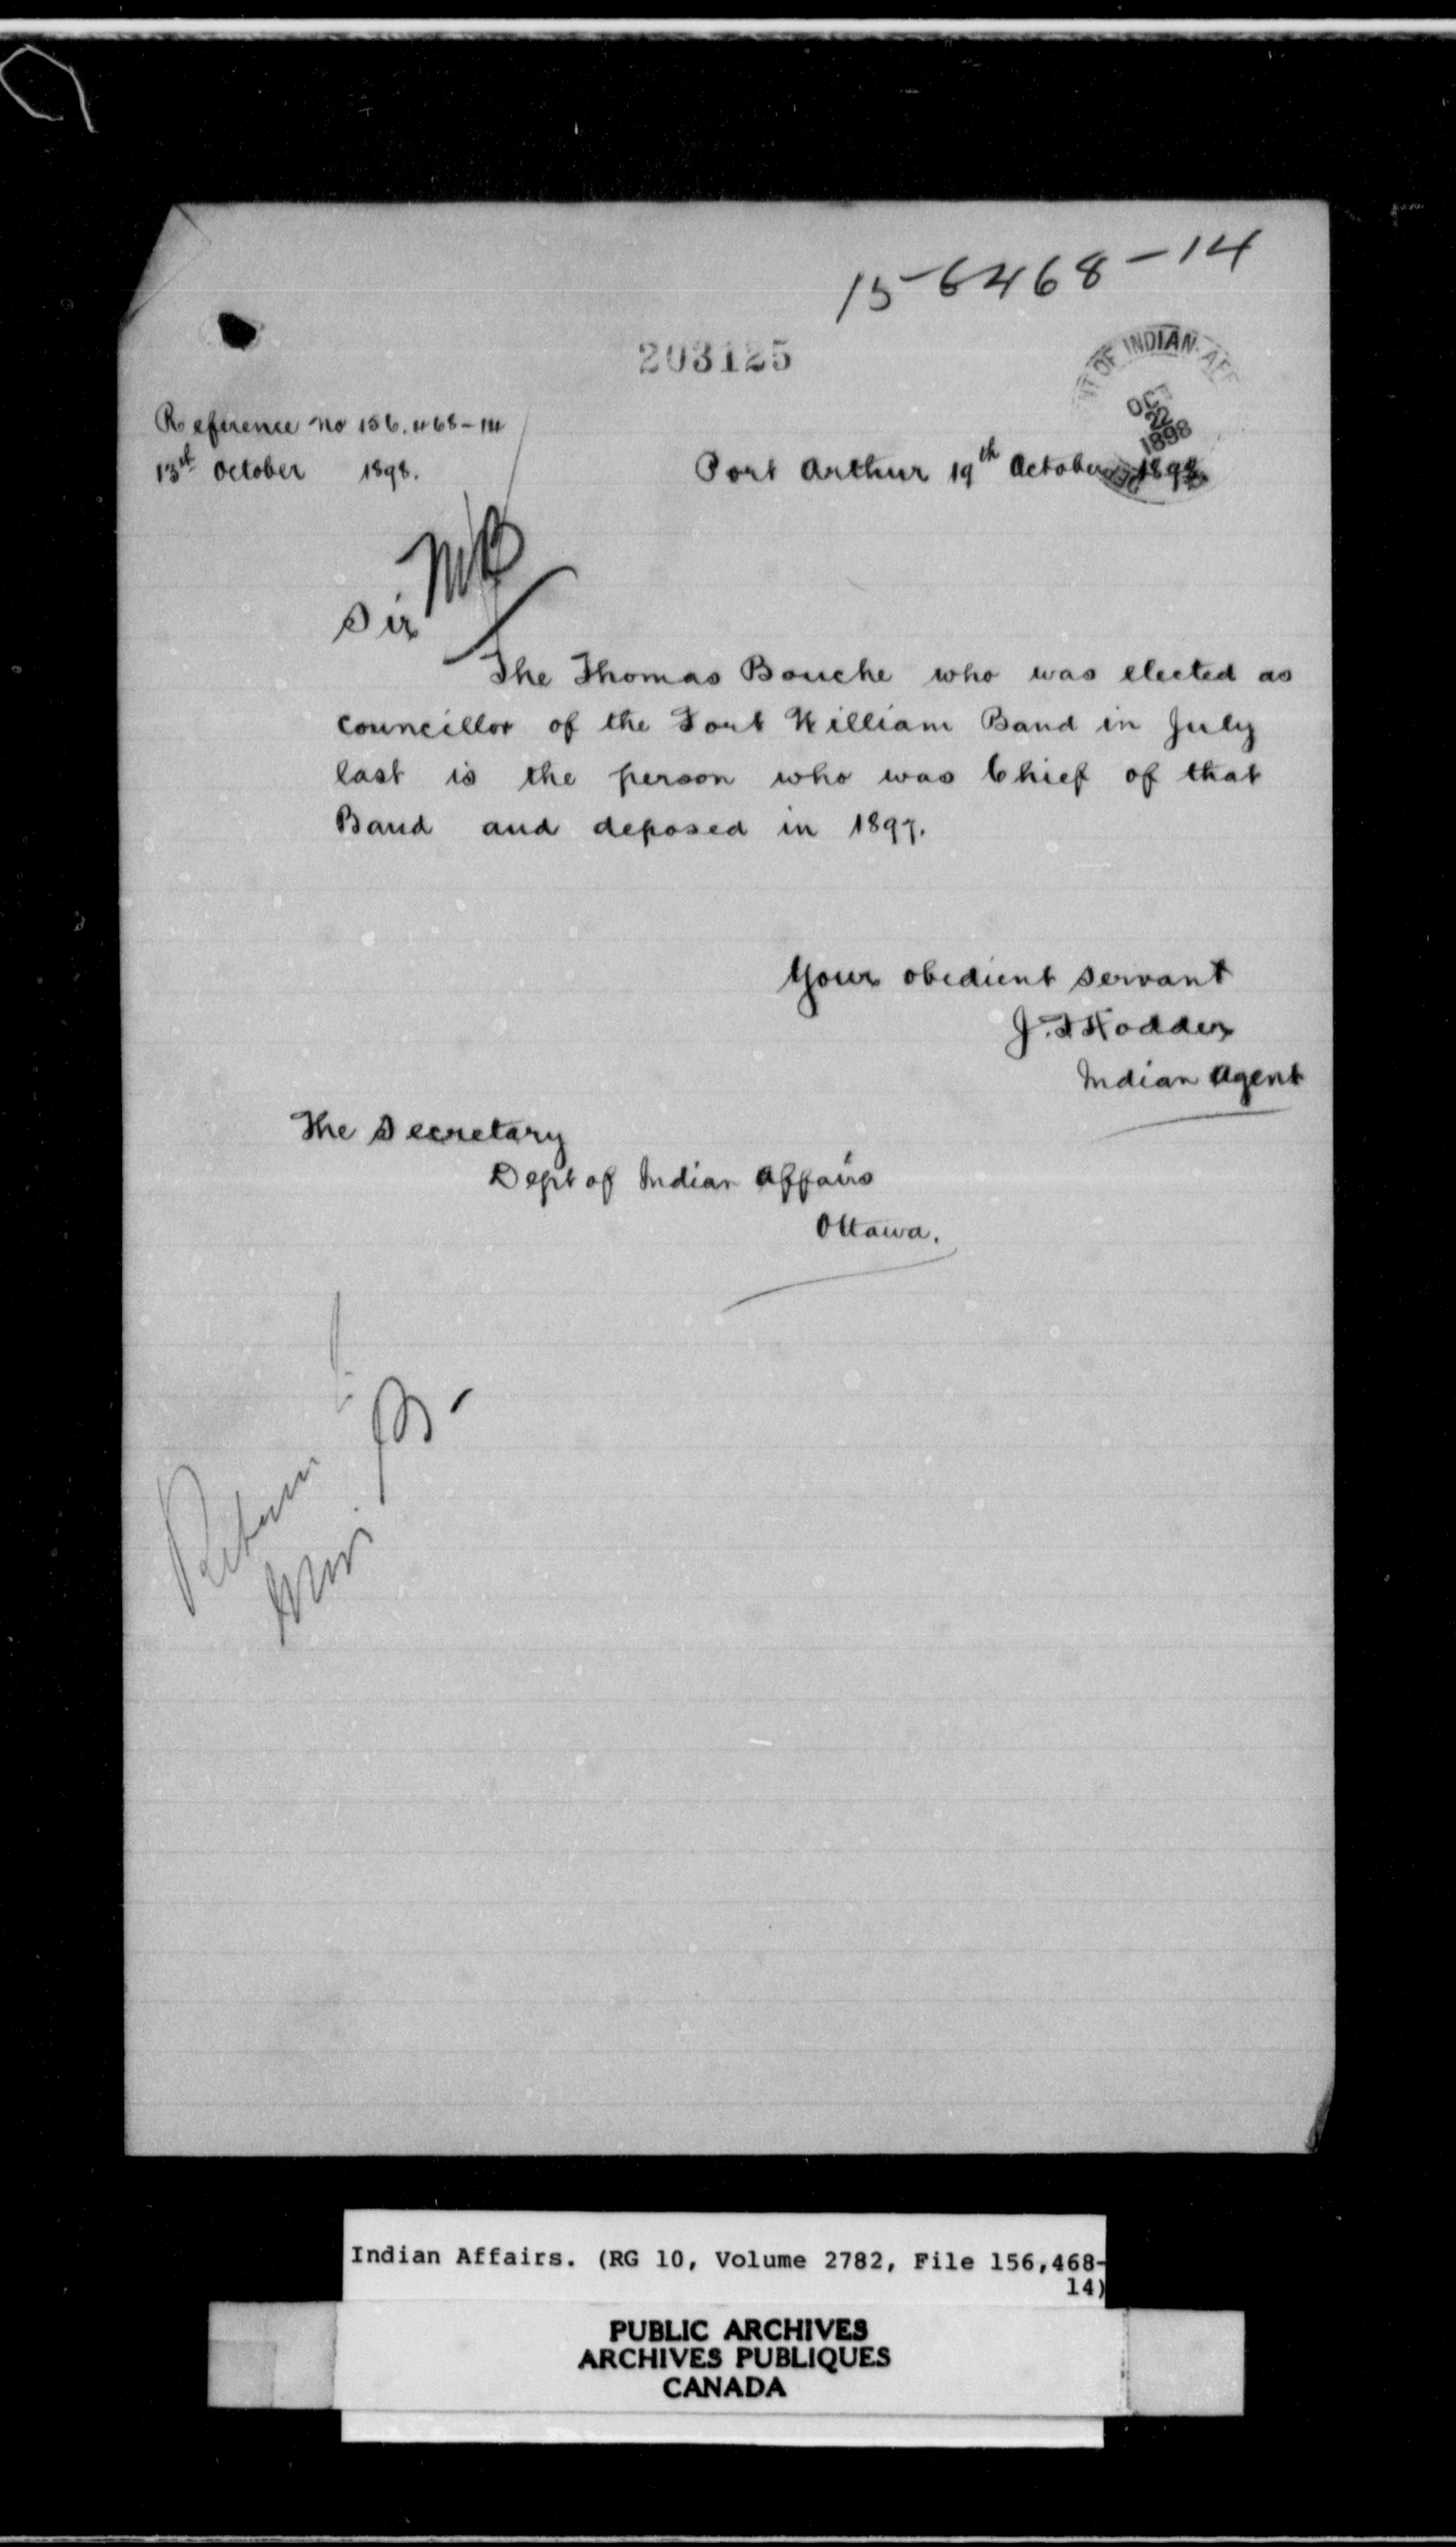 156468-14
203125
T OF INDIAN AFF
OCT
22
1898
DEP
Reference no 156.468-14
13th October 1898.
Port Arthur 19th October 1898
MB
Sir
The Thomas Bouche who was elected as
councillor of the Fort William Band in July
last is the person who was Chief of that
Band and deposed in 1897.
Your obedient servant
J. F Hodder
Indian Agent
The Secretary
Dept of Indian Affairs
Ottawa.
Return
Indian Affairs. (RG 10, Volume 2782, File 156,468-
14)
PUBLIC ARCHIVES
ARCHIVES PUBLIQUES
CANADA